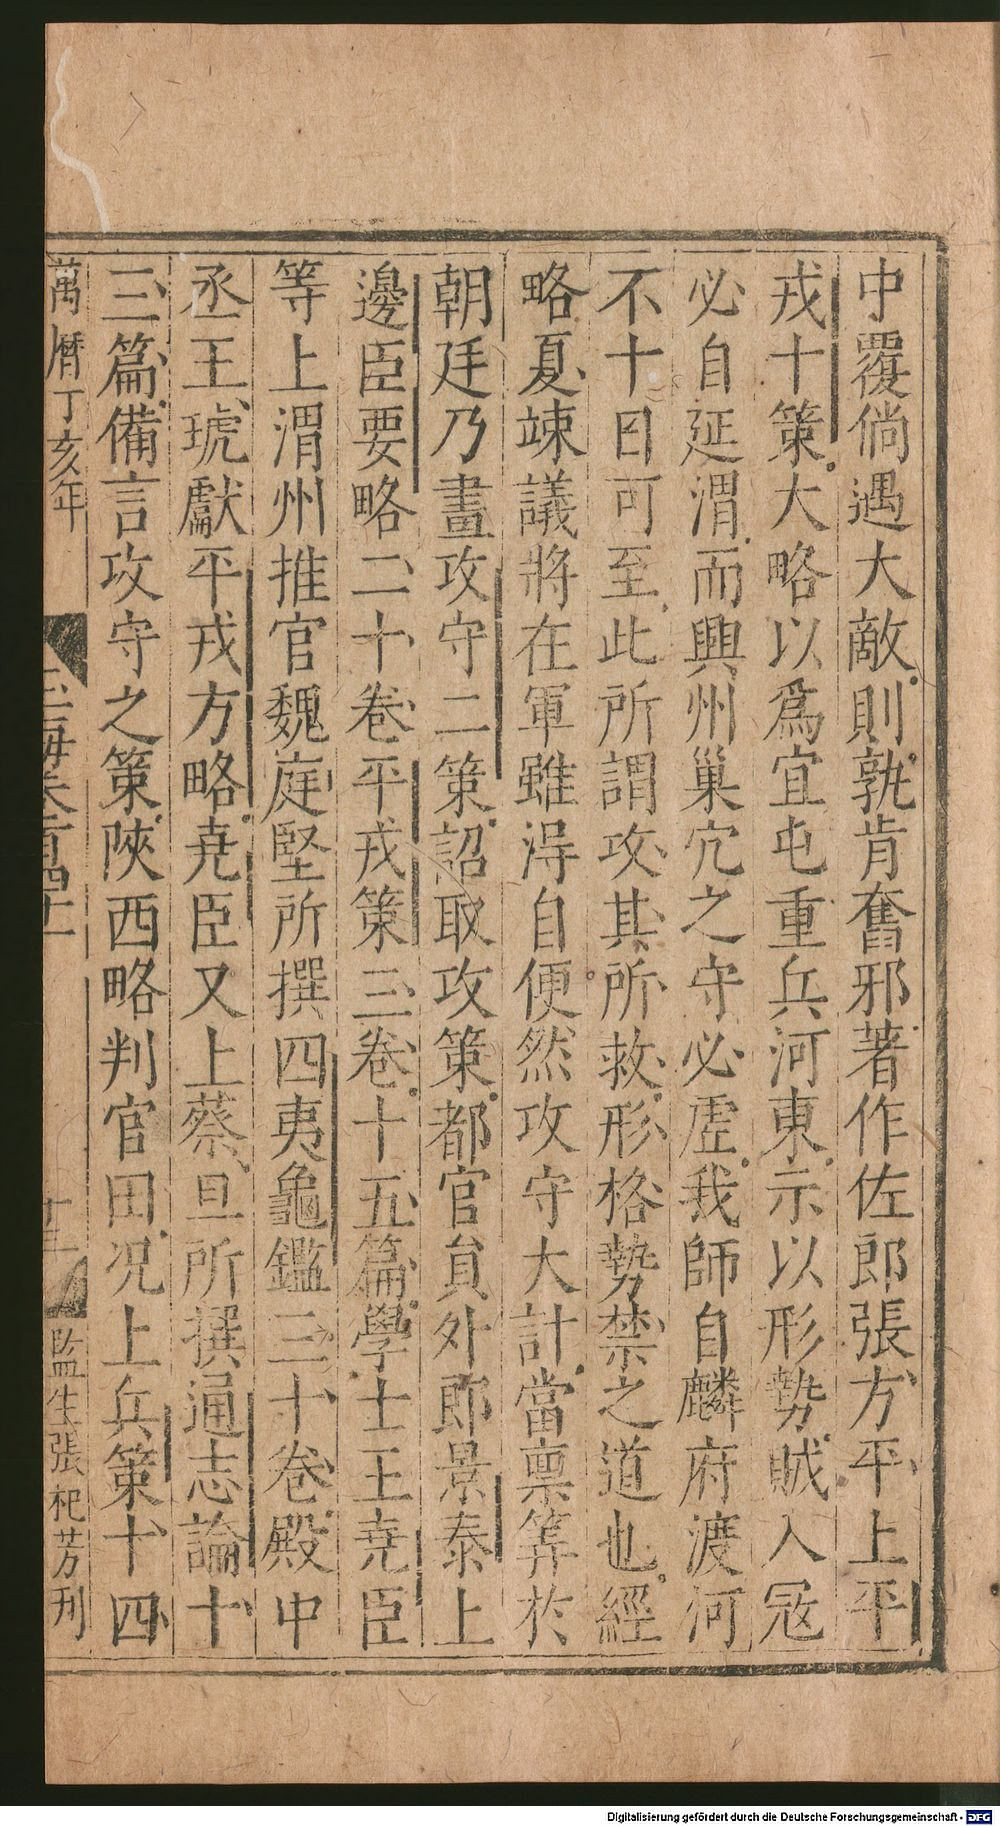 中覆倘遇大敵則孰肯奮邪著作佐郎張方平上平
戎十策大略以爲宜屯重兵河東示以形勢賊入寇
必自延渭而興州巢穴之守必虛我師自麟府渡河
不十日可至此所謂攻其所救形格勢禁之道也經
略夏竦議將在軍雖得自便然攻守大計當稟筭於
朝廷乃畫攻守二策詔取攻策都官貟外郎景泰上
邊臣要略二十卷平戎策三卷十五篇學士王堯臣
等上渭州推官魏庭堅所撰四夷龜鑑三十卷殿中
丞王琥獻平戎方略堯臣又上蔡旦所撰通志論十
三篇備言攻守之策陝西略判官田况上兵策十四
萬曆丁亥年 玉海卷百四十一 十三 監生張杞芳刊
Digitalisierung gefördert durch die Deutsche Forschungsgemeinschaft - DFG